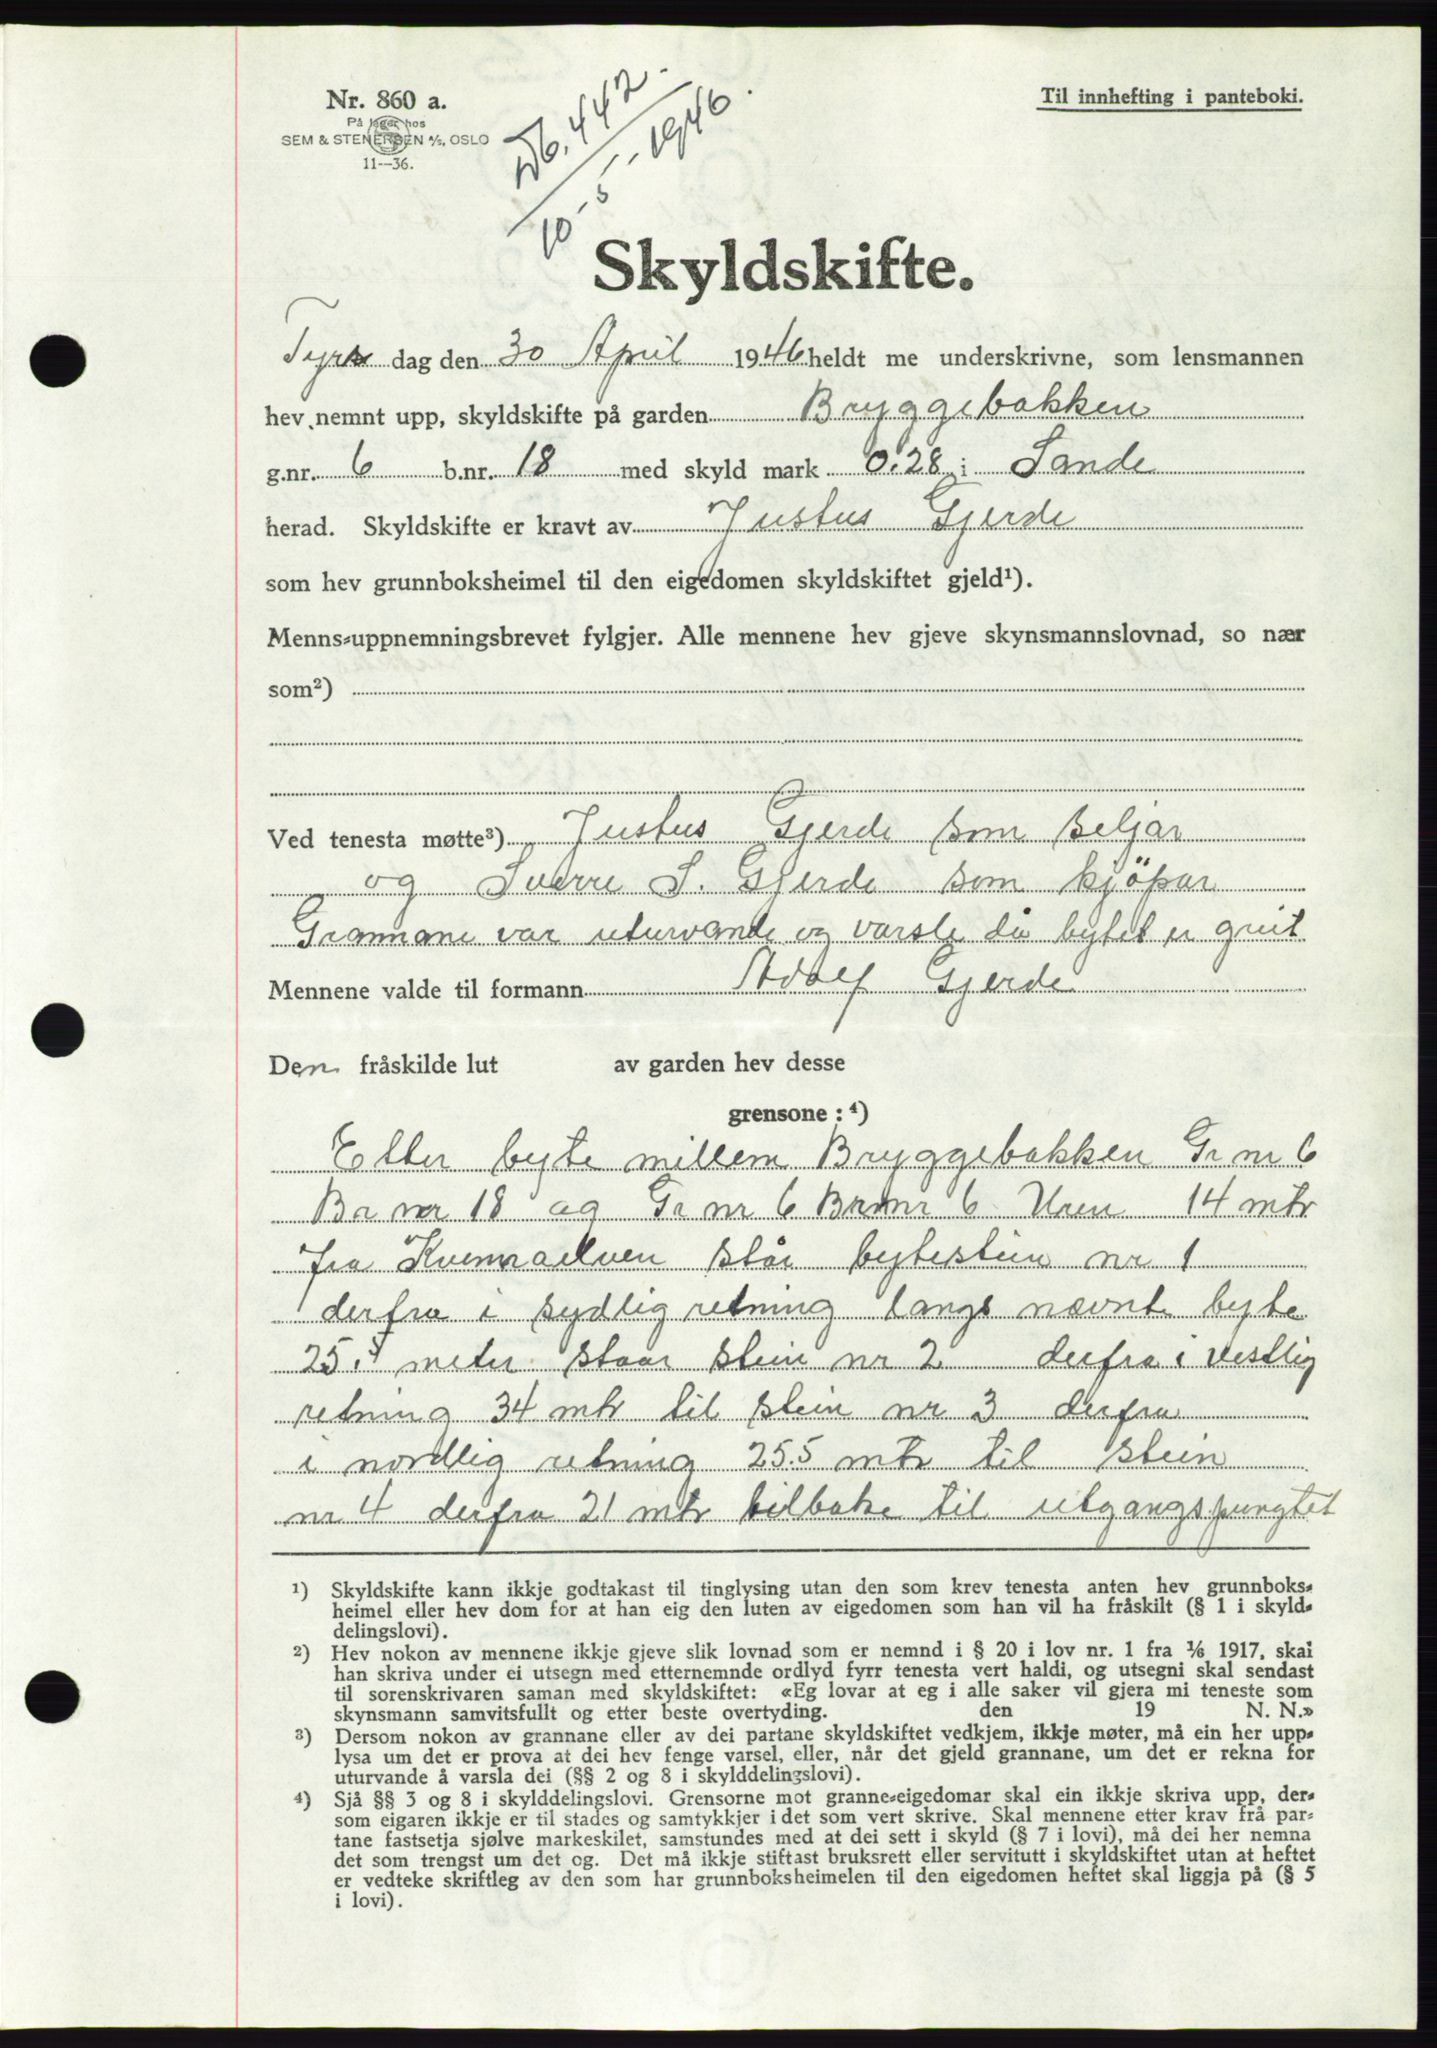 Nr. 860 a.
På lager hos
SEM & STENERSEN A/S, OSLO
11--36.
Db. 442.
10-5-1946.
Til innhefting i panteboki.
Skyldskifte.
Tyrs dag den 30 April 1946 heldt me underskrivne, som lensmannen
hev nemnt upp, skyldskifte på garden Bryggebakken
g.nr. 6 b.nr. 18 med skyld mark 0.28 i Sande
herad. Skyldskifte er kravt av Justus Gjerde
som hev grunnboksheimel til den eigedomen skyldskiftet gjeld¹).
Menns-uppnemningsbrevet fylgjer. Alle mennene hev gjeve skynsmannslovnad, so nær
som²)
Ved tenesta møtte³) Justus Gjerde som seljar
og Sverre S. Gjerde som kjöpar
Grannane var uturvande og varsle då bytet er greit
Mennene valde til formann Adolf Gjerde
Den fråskilde lut av garden hev desse
grensone : ⁴)
Etter byte millem Bryggebakken Gr nr 6
Br nr 18 og Gr nr 6 Br nr 6 Uren 14 mtr
fra Kvennaelven står bytestein nr 1
derfra i sydlig retning langs nævnte byte
25.5 meter staar stein nr 2 derfra i vestlig
retning 34 mtr til stein nr 3 derfra
i nordlig retning 25.5 mtr til stein
nr 4 derfra 21 mtr tilbake til utgangspungtet
¹) Skyldskifte kann ikkje godtakast til tinglysing utan den som krev tenesta anten hev grunnboks-
heimel eller hev dom for at han eig den luten av eigedomen som han vil ha fråskilt (§ 1 i skyld-
delingslovi).
²) Hev nokon av mennene ikkje gjeve slik lovnad som er nemnd i § 20 i lov nr. 1 fra 1/6 1917, skal
han skriva under ei utsegn med etternemnde ordlyd fyrr tenesta vert haldi, og utsegni skal sendast
til sorenskrivaren saman med skyldskiftet: «Eg lovar at eg i alle saker vil gjera mi teneste som
skynsmann samvitsfullt og etter beste overtyding. den 19 N. N.»
³) Dersom nokon av grannane eller av dei partane skyldskiftet vedkjem, ikkje møter, må ein her upp-
lysa um det er prova at dei hev fenge varsel, eller, når det gjeld grannane, um det er rekna for
uturvande å varsla dei (§§ 2 og 8 i skylddelingslovi).
⁴) Sjå §§ 3 og 8 i skylddelingslovi. Grensorne mot granne-eigedomar skal ein ikkje skriva upp, der-
som eigaren ikkje er til stades og samtykkjer i det som vert skrive. Skal mennene etter krav frå par-
tane fastsetja sjølve markeskilet, samstundes med at dei sett i skyld (§ 7 i lovi), må dei her nemna
det som trengst um det og. Det må ikkje stiftast bruksrett eller servitutt i skyldskiftet utan at heftet
er vedteke skriftleg av den som har grunnboksheimelen til den eigedomen heftet skal liggja på (§ 5
i lovi).